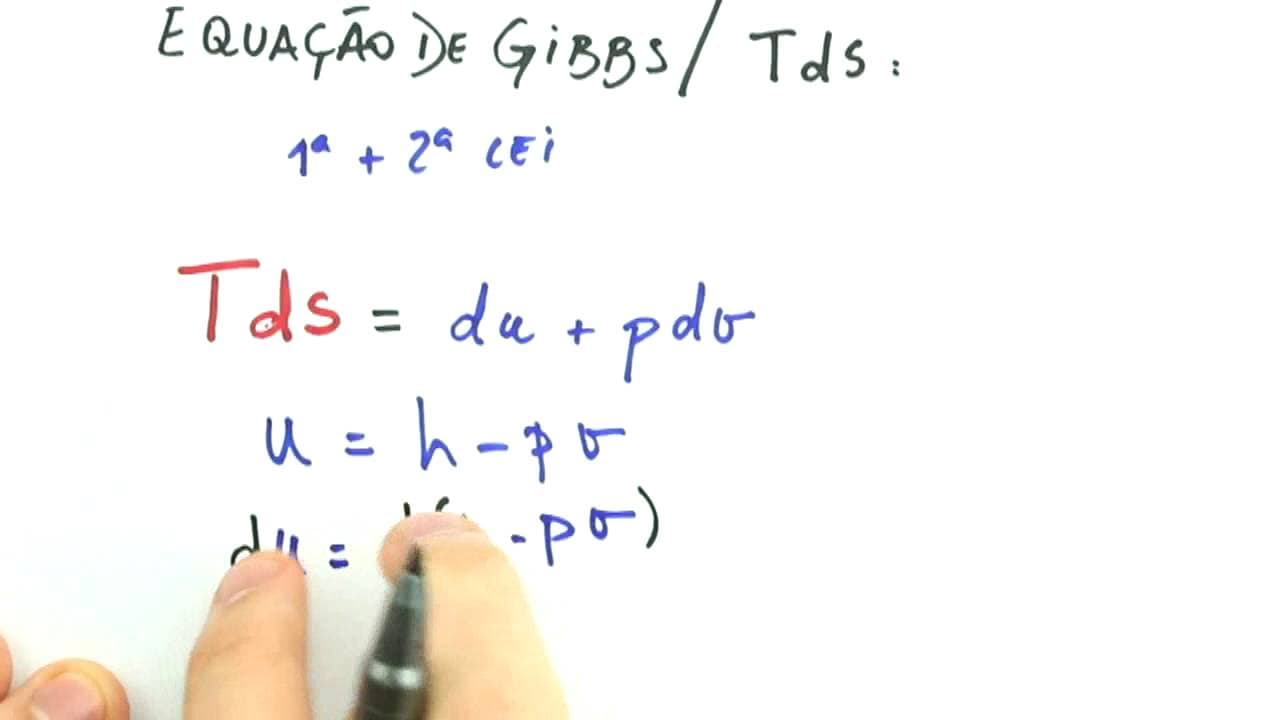 EQUAÇÃO DE GiBBS / Tds :
1ª + 2ª LEi
Tds = du + pdv
u = h - pv
du = - pv)